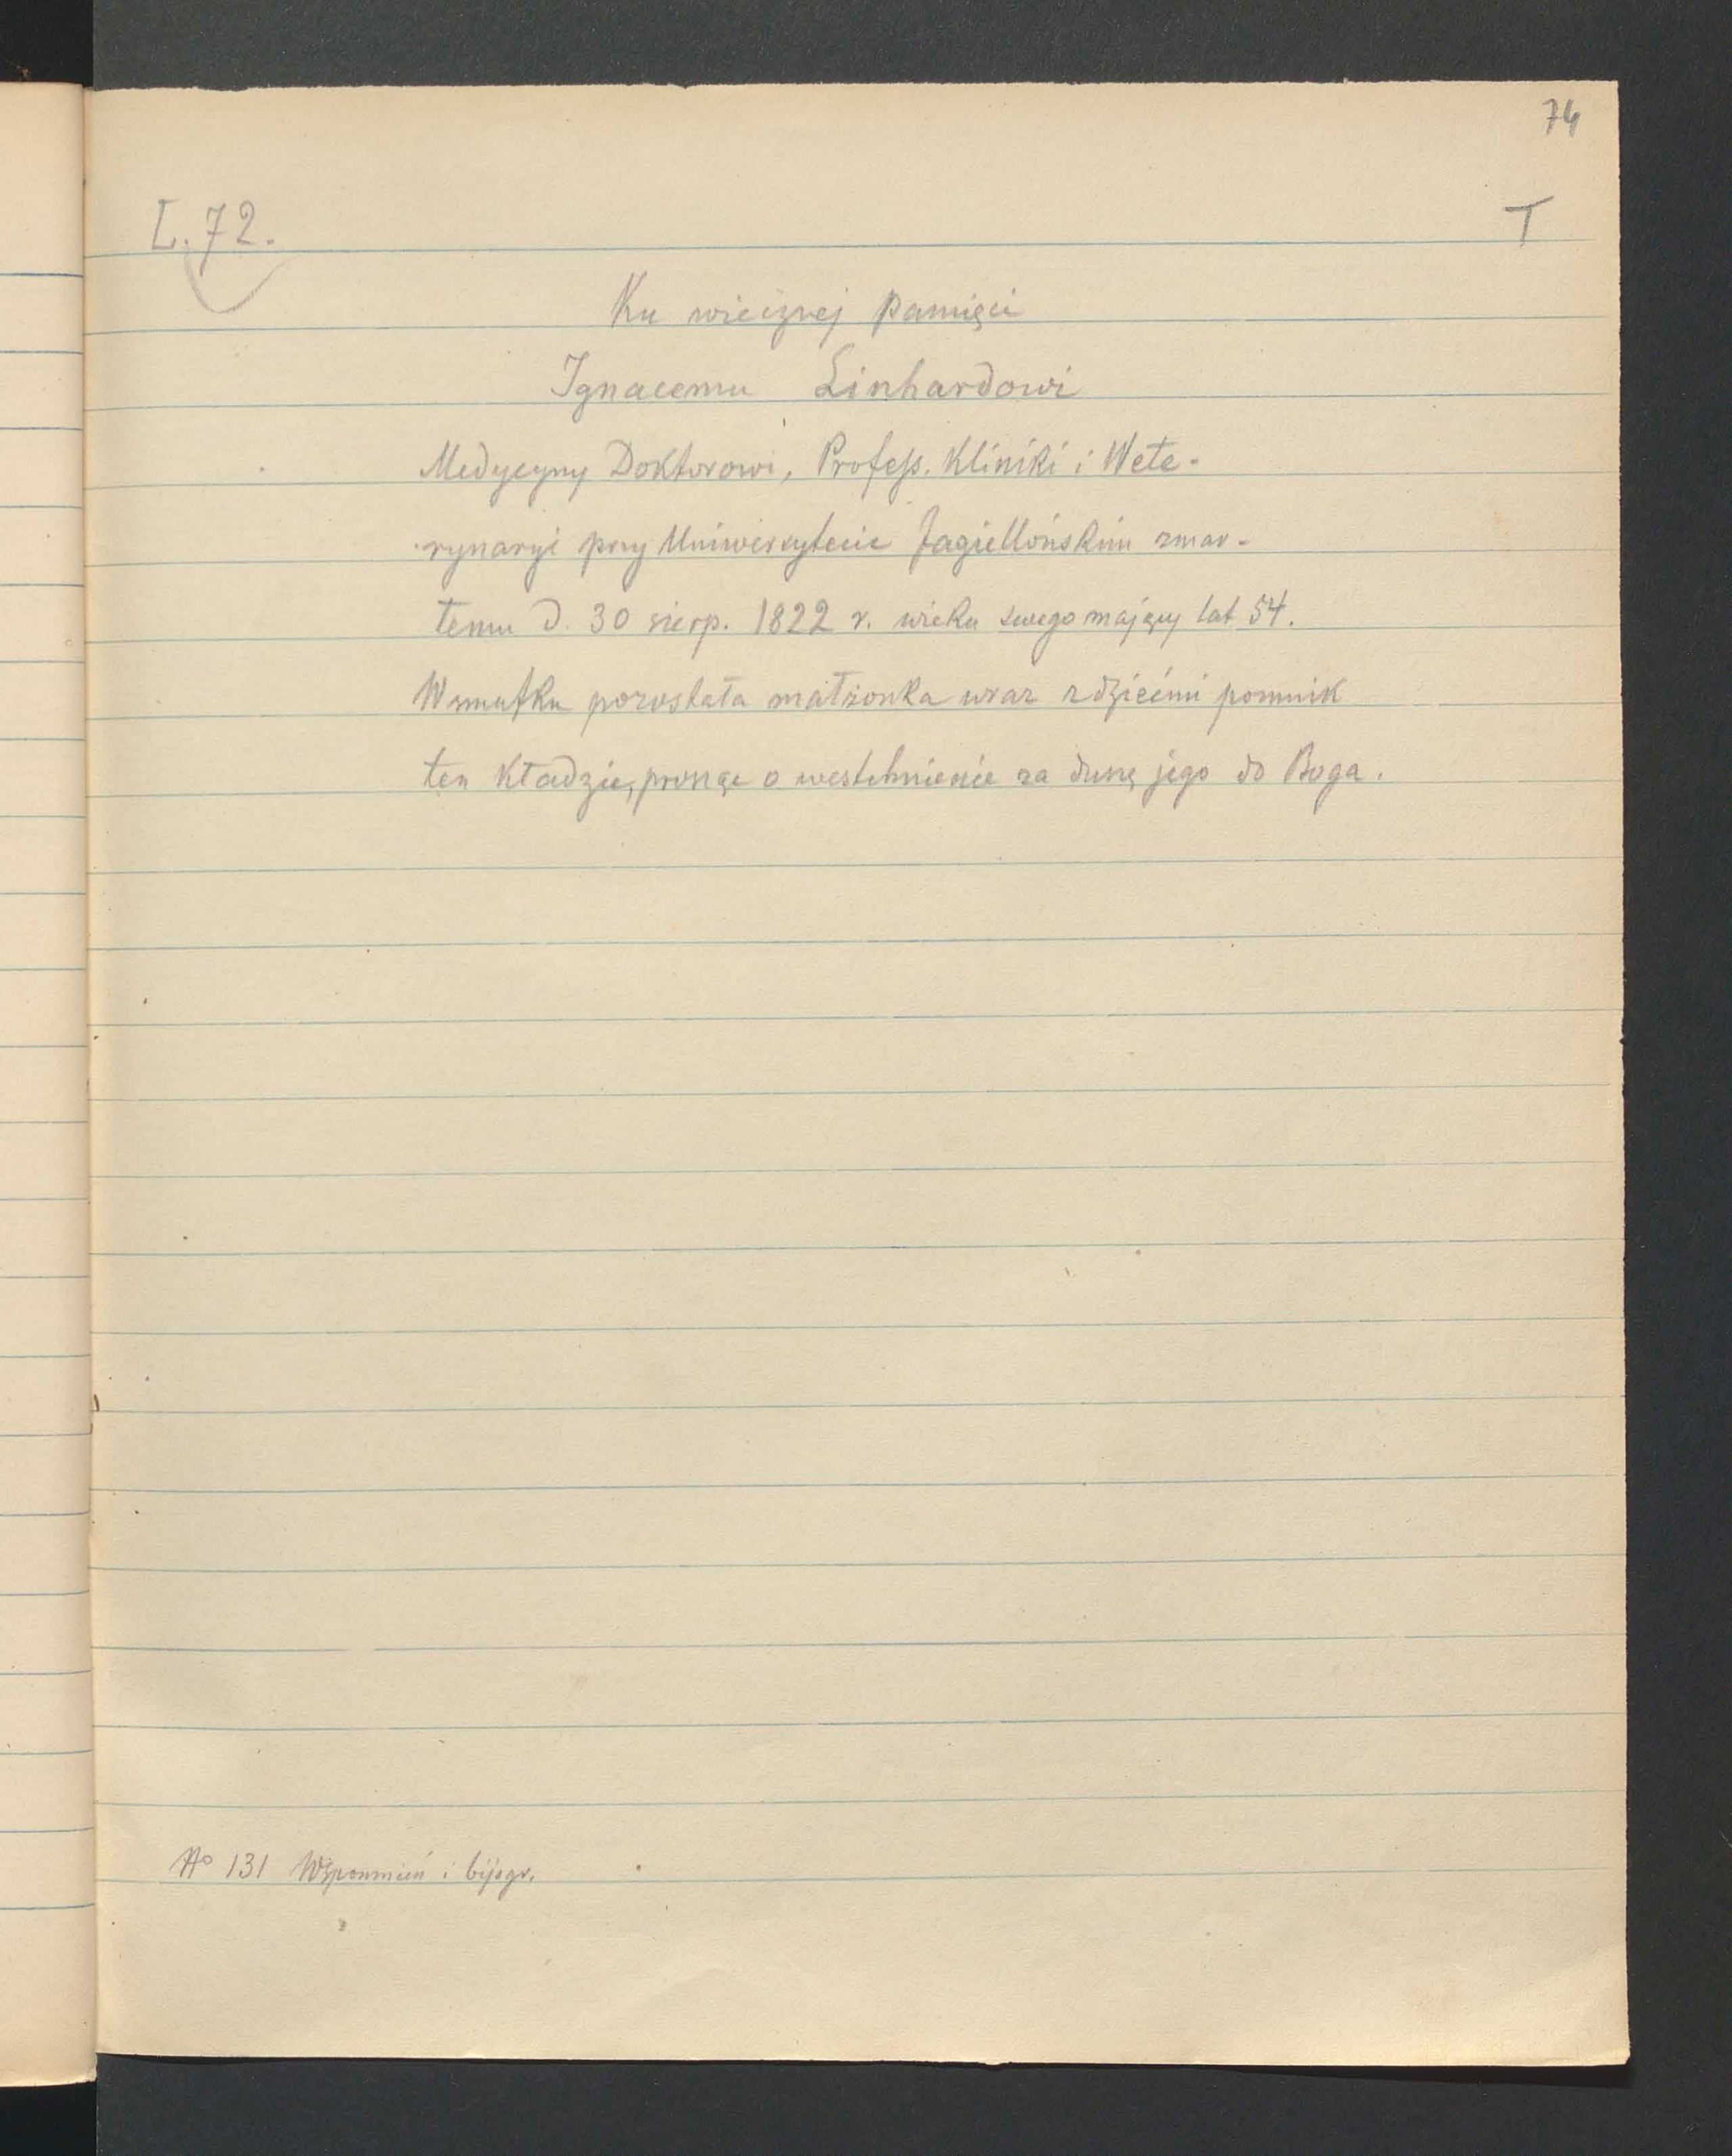 74
L. 72.
T
Ku wiecznej Pamięci
Ignacemu Linhardowi
Medycyny Doktorowi, Profess. Kliniki i Wete-
rynaryi przy Uniwersytecie Jagiellońskim zmar-
łemu d. 30 sierp. 1822 r. wieku swego mający lat 54.
W smutku pozostała małżonka wraz z dziećmi pomnik
ten kładzie, prosząc o westchnienie za duszę jego do Boga.
No 131 Wspomnień i bijogr.